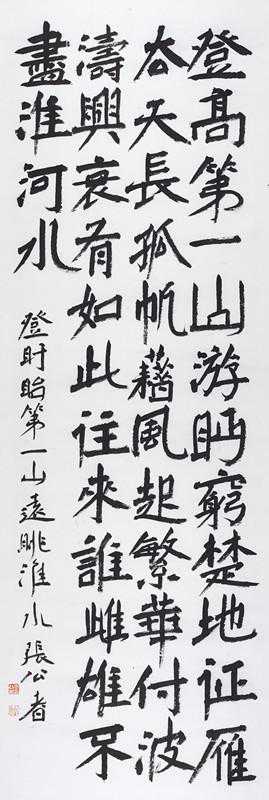 登高第一山游眄窮楚地征雁
去天長孤帆藉風起繁華付波
濤興衰有如此往來誰雌雄不
盡淮河水
登盱眙第一山遠眺淮水張公者